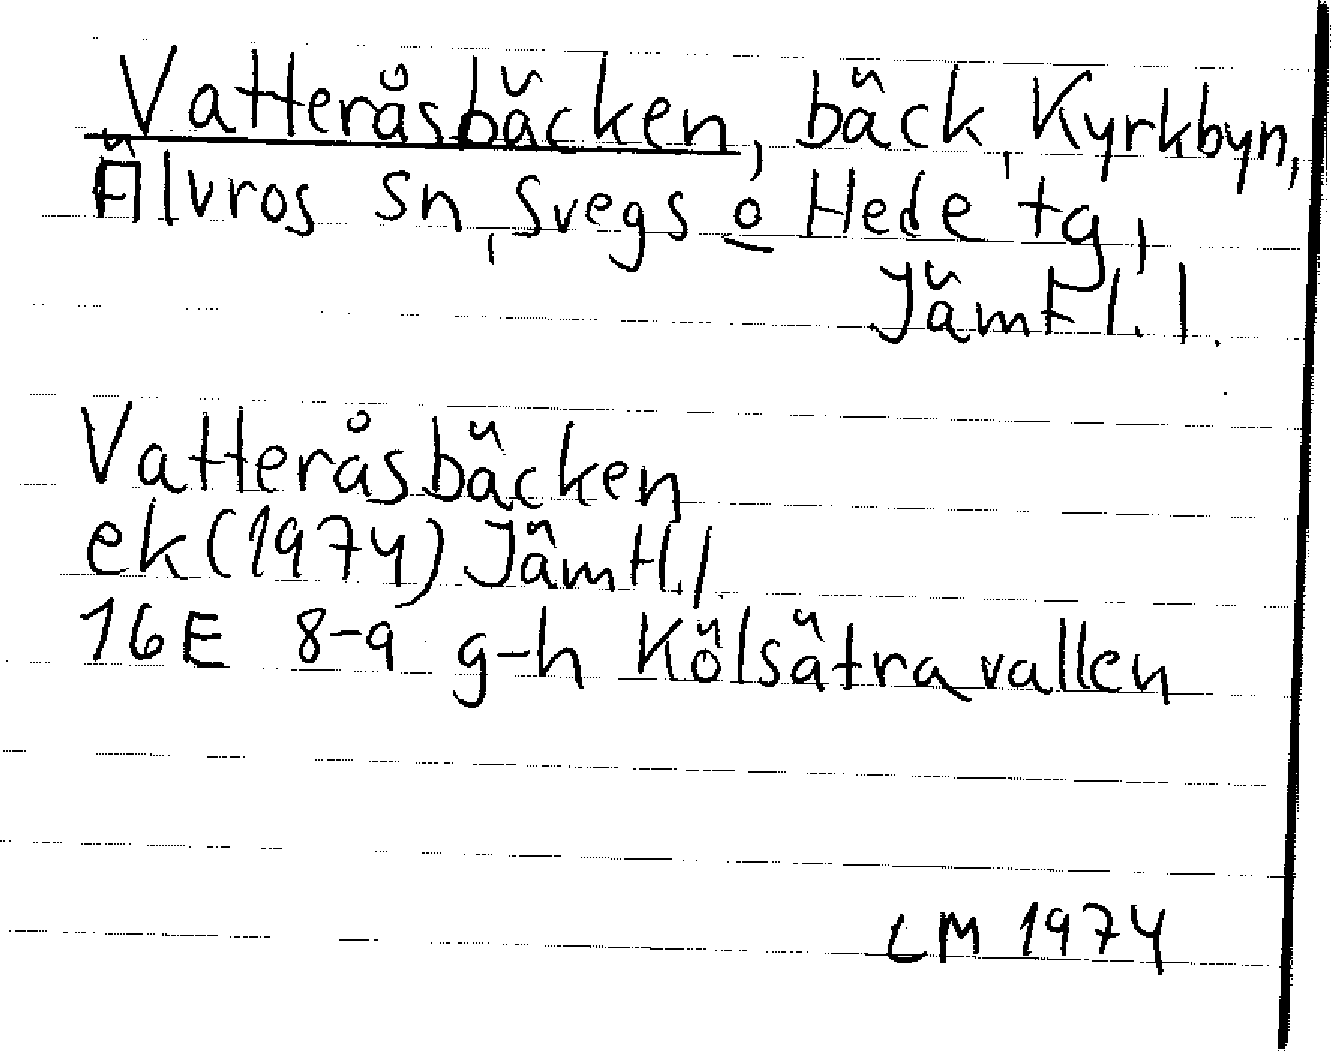 Vatteråsbäcken, bäck, Kyrkbyn,
Älvros sn, Svegs o Hede tg,
Jämtl. l.
Vatteråsbäcken
ek (1974) Jämtl. l.
16E 8-9 g-h Kölsätravallen
LM 1974